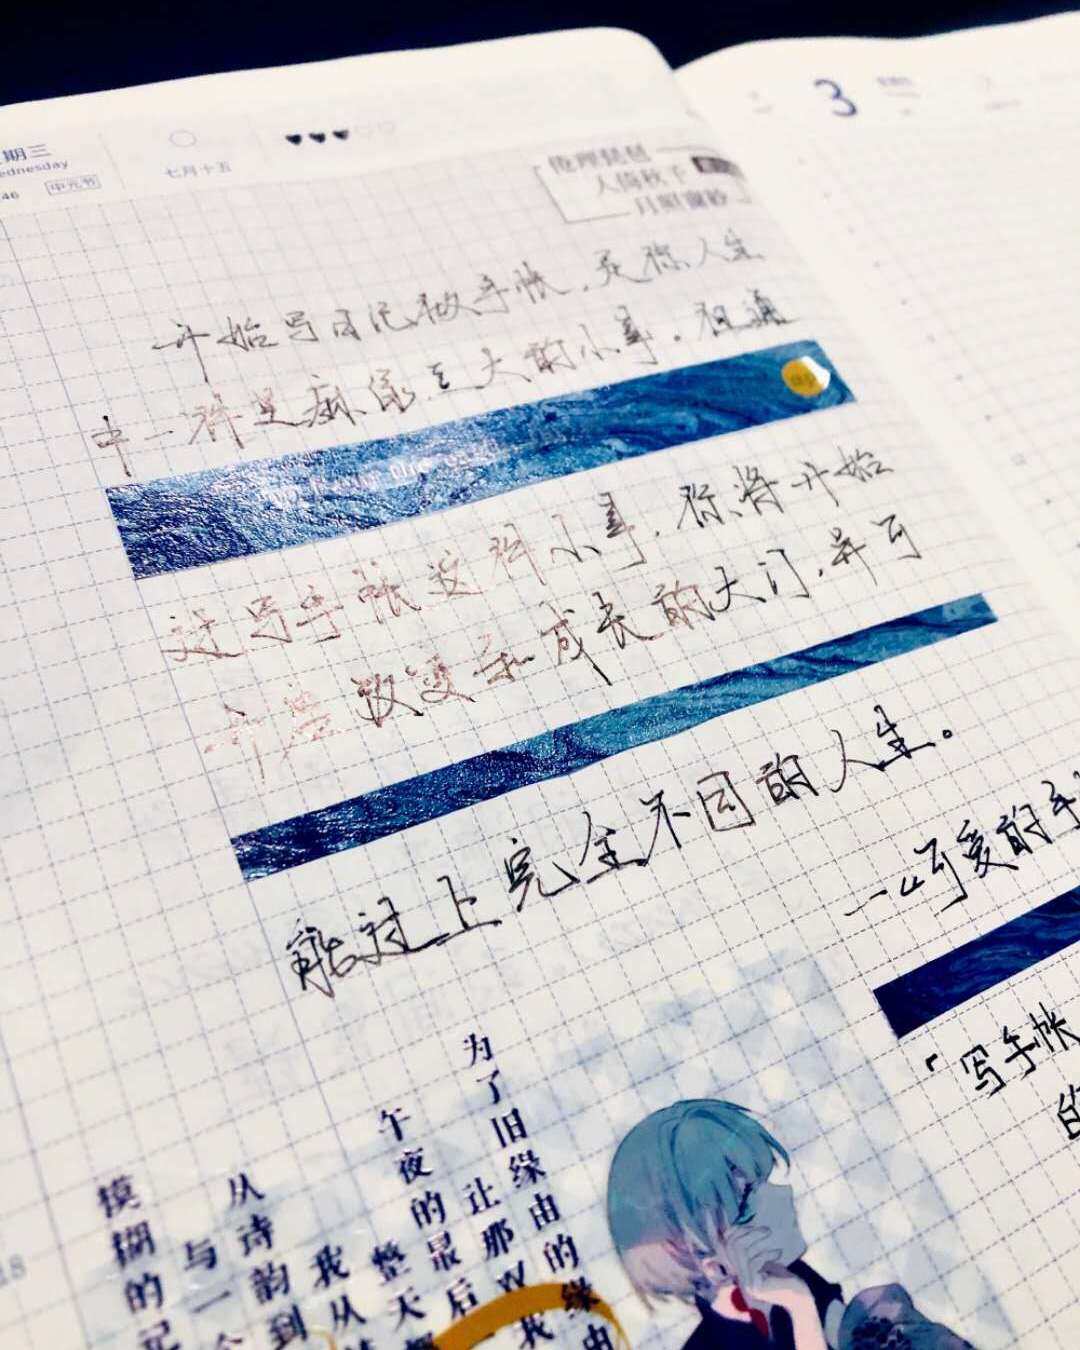 期三
ednesday
46
中元节
七月十五
3
倦理琵琶
人倚秋千
月照窗纱
开始写日记做手帐，是你人生
中一件是微不足大的小事。但通
过写手帐这件小事，你将开始
开启改变和成长的大门，并可
能过上完全不同的人生。
一可爱的手
"写手帐
的
为了旧缘由的缘由
让那
午夜的最后
整天
我从
从诗韵到
与一个
模糊的记
18